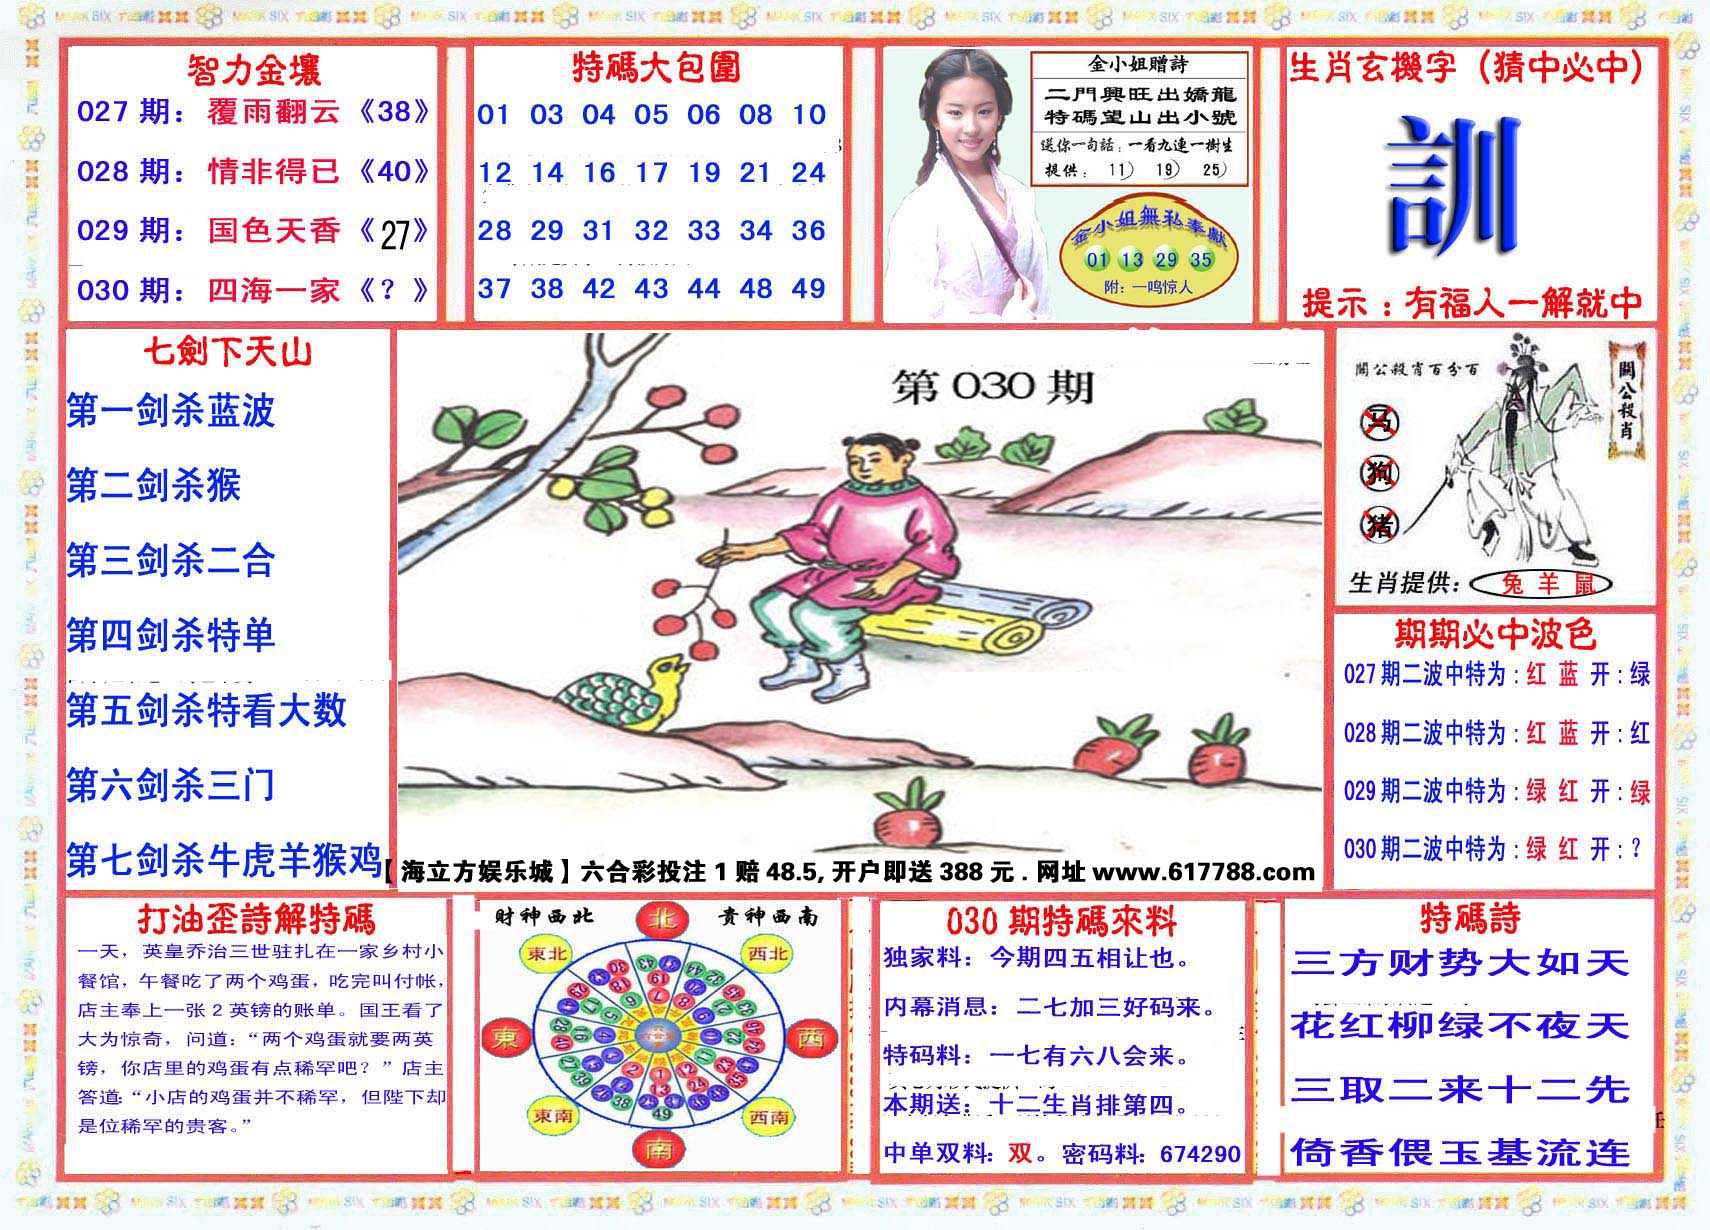 智力金壤
027 期：覆雨翻云《38》
028 期：情非得已《40》
029 期：国色天香《27》
030 期：四海一家《？》
特碼大包圍
01 03 04 05 06 08 10
12 14 16 17 19 21 24
28 29 31 32 33 34 36
37 38 42 43 44 48 49
金小姐贈詩
二門興旺出嬌龍
特碼望山出小號
送你一句話：一看九連一樹生
提供： 11） 19） 25）
金小姐無私奉獻
01 13 29 35
附：一鸣惊人
生肖玄機字（猜中必中）
訓
提示：有福人一解就中
七劍下天山
第一剑杀蓝波
第二剑杀猴
第三剑杀二合
第四剑杀特单
第五剑杀特看大数
第六剑杀三门
第七剑杀牛虎羊猴鸡
第 030 期
【海立方娱乐城】六合彩投注 1 赔 48.5, 开户即送 388 元 . 网址 www.617788.com
關公殺肖百分百
關公殺肖
马
狗
猪
生肖提供： 兔 羊 鼠
期期必中波色
027 期二波中特为 : 红 蓝 开 : 绿
028 期二波中特为 : 红 蓝 开 : 红
029 期二波中特为 : 绿 红 开 : 绿
030 期二波中特为 : 绿 红 开 : ?
打油歪詩解特碼
一天，英皇乔治三世驻扎在一家乡村小
餐馆，午餐吃了两个鸡蛋，吃完叫付帐，
店主奉上一张 2 英镑的账单。国王看了
大为惊奇，问道：“两个鸡蛋就要两英
镑，你店里的鸡蛋有点稀罕吧？”店主
答道：“小店的鸡蛋并不稀罕，但陛下却
是位稀罕的贵客。”
财神西北
貴神西南
北
東北
西北
東
西
東南
西南
南
030 期特碼來料
独家料：今期四五相让也。
内幕消息：二七加三好码来。
特码料：一七有六八会来。
本期送：十二生肖排第四。
中单双料：双。密码料：674290
特碼詩
三方财势大如天
花红柳绿不夜天
三取二来十二先
倚香偎玉基流连